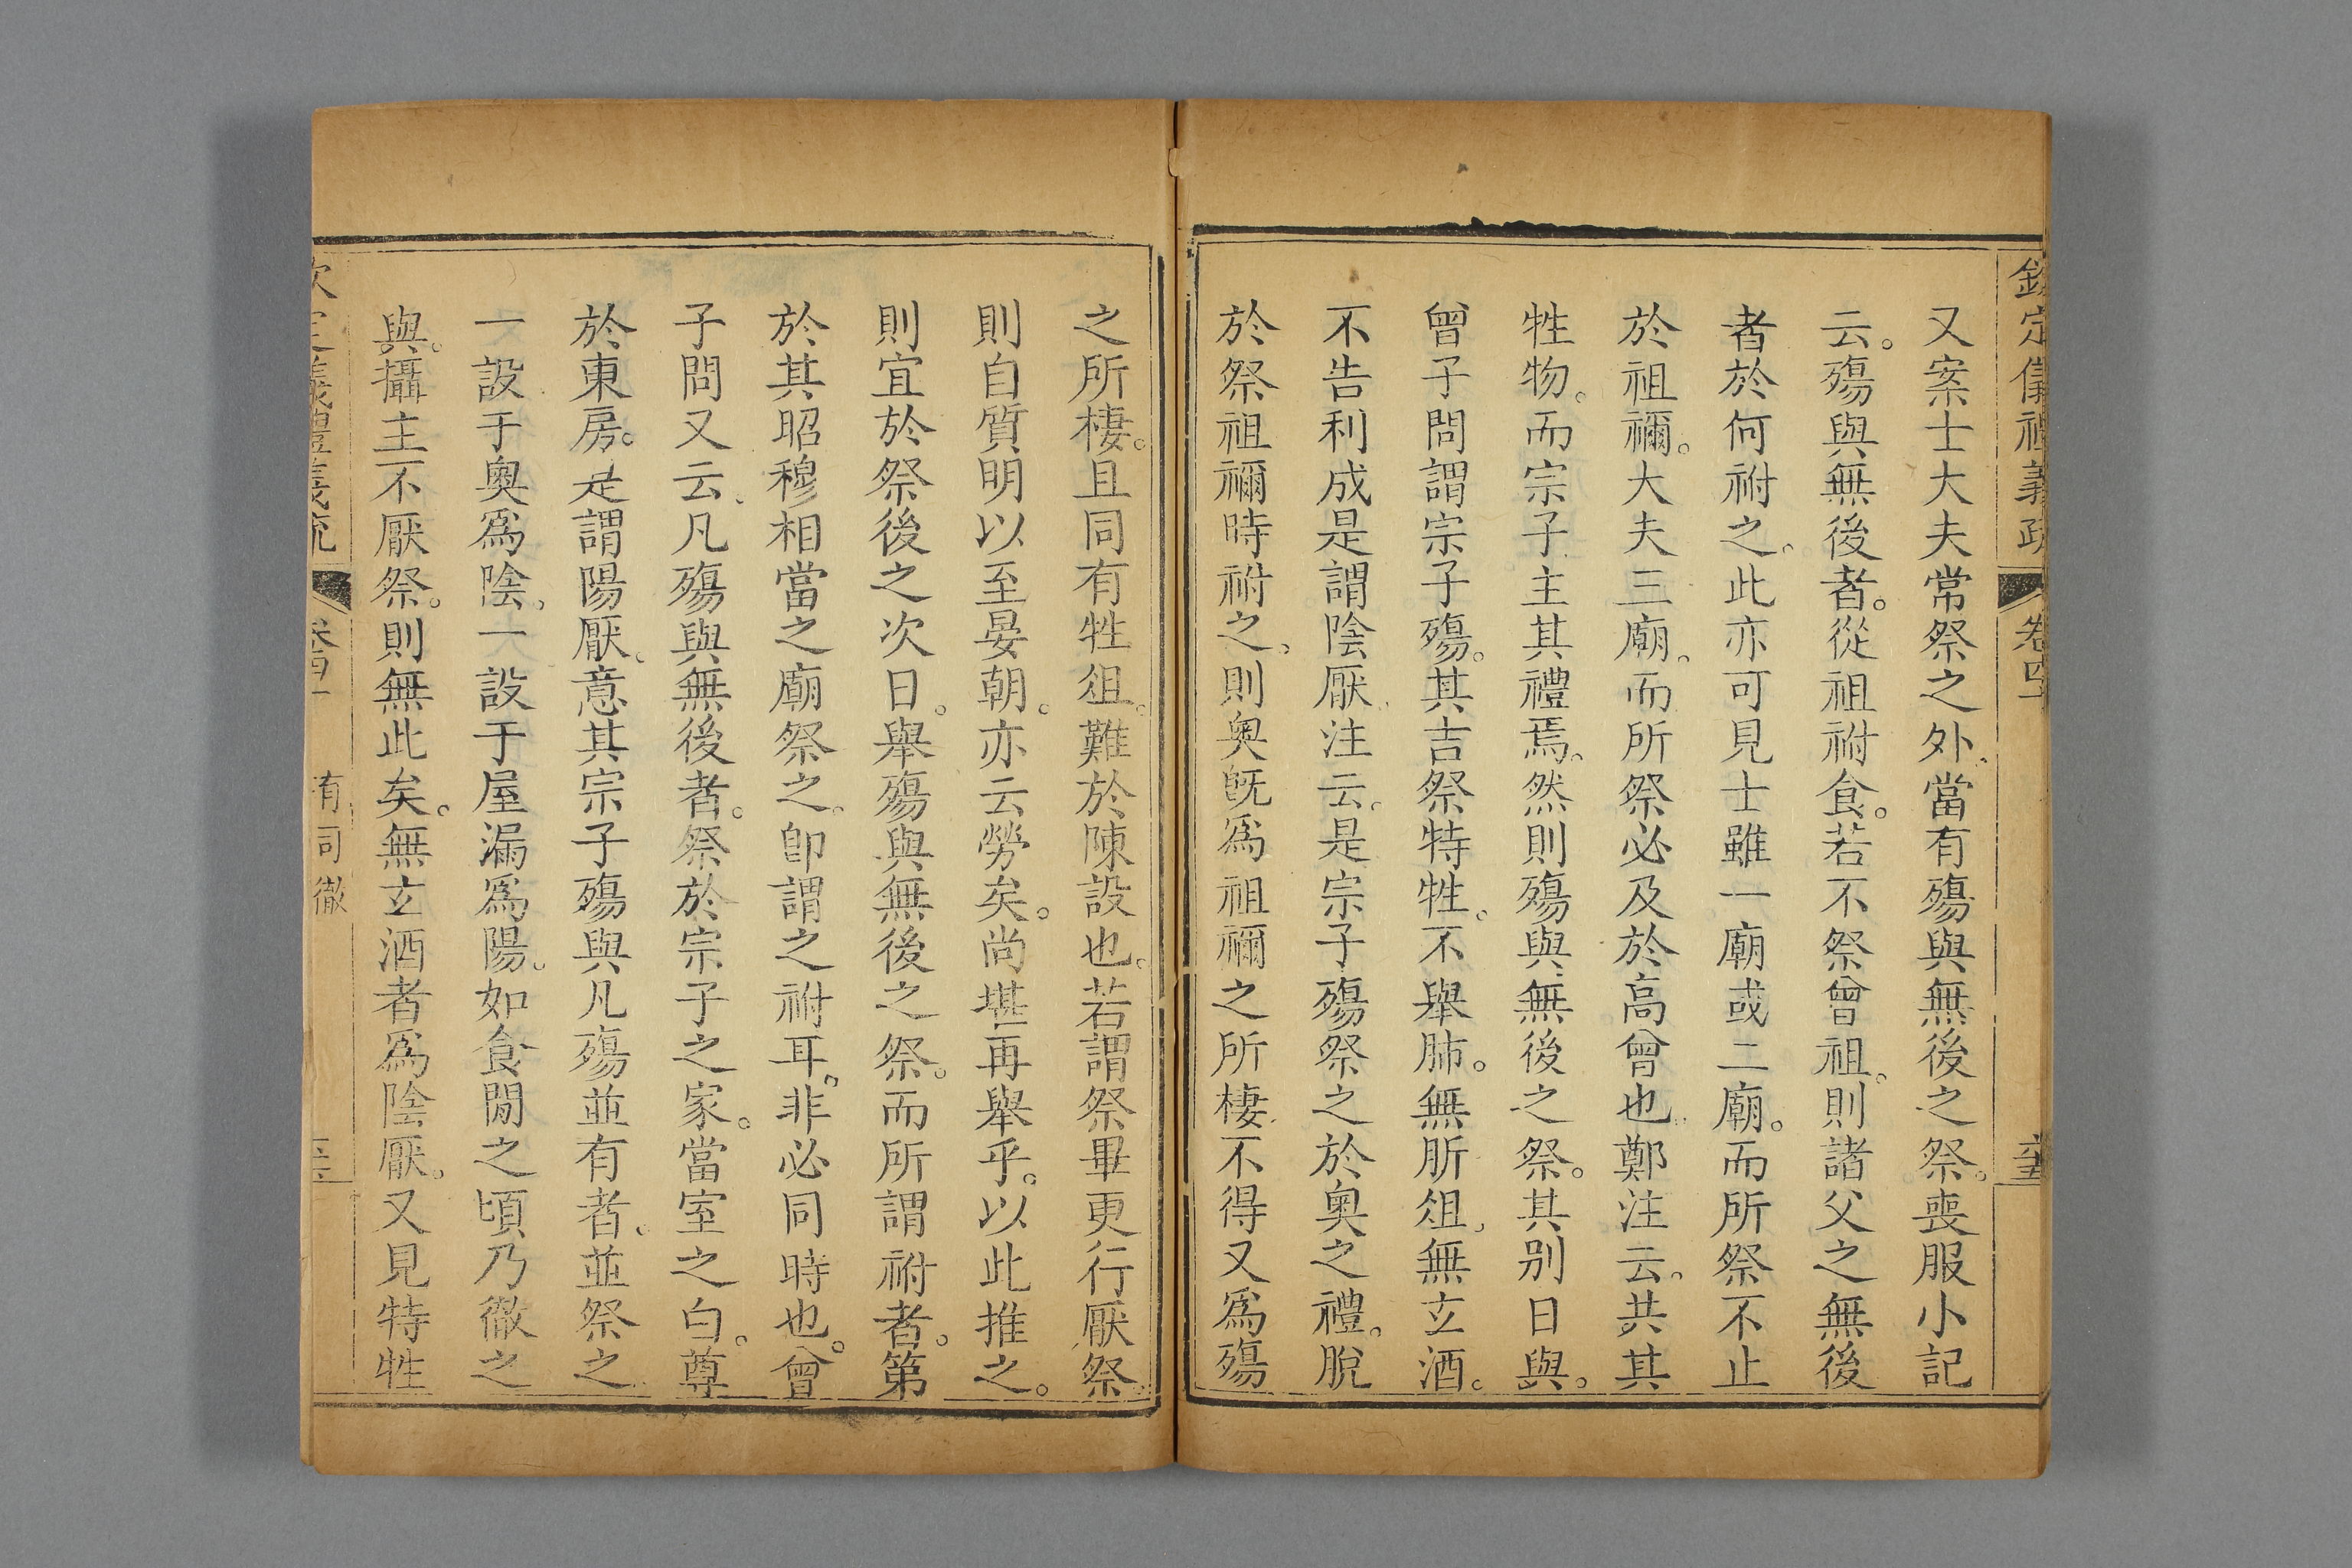 欽定儀禮義疏 卷四十
又案士大夫常祭之外當有殤與無後之祭。喪服小記
云。殤與無後者。從祖祔食。若不祭曾祖。則諸父之無後
者於何祔之。此亦可見士雖一廟或二廟。而所祭不止
於祖禰。大夫三廟。而所祭必及於高曾也。鄭注云。共其
牲物。而宗子主其禮焉。然則殤與無後之祭。其別日與。
曾子問謂宗子殤。其吉祭特牲。不舉肺。無肵俎。無玄酒。
不告利成是謂陰厭。注云。是宗子殤祭之於奧之禮。脫
於祭祖禰時祔之、則奧旣爲祖禰之所棲。不得又爲殤
之所棲。且同有牲俎。難於陳設也。若謂祭畢更行厭祭。
則自質明以至晏朝。亦云勞矣。尚堪再舉乎。以此推之。
則宜於祭後之次日。舉殤與無後之祭。而所謂祔者。第
於其昭穆相當之廟祭之。卽謂之祔耳。非必同時也。曾
子問又云。凡殤與無後者。祭於宗子之家。當室之白。尊
於東房。是謂陽厭。意其宗子殤與凡殤並有者。並祭之
一設于奧爲陰。一設于屋漏爲陽。如食閒之頃乃徹之
與。攝主不厭祭。則無此矣。無玄酒者爲陰厭。又見特牲
欽定儀禮義疏 有司徹